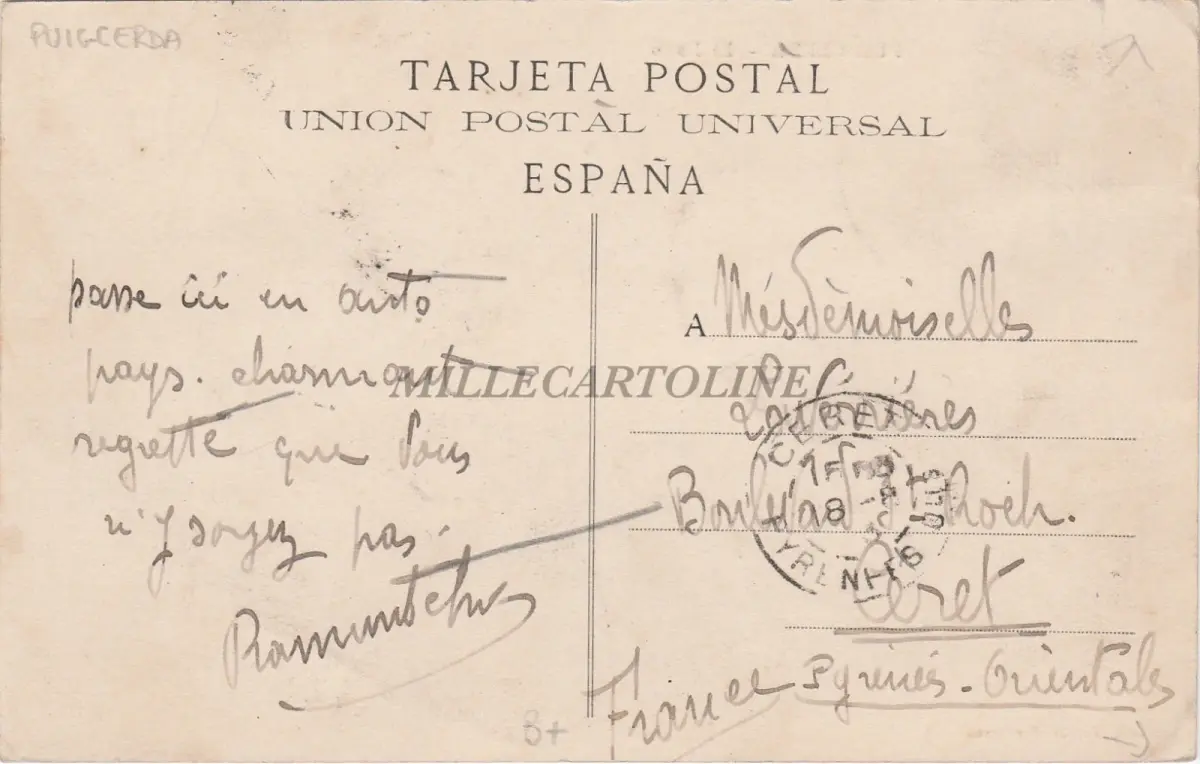 PUIGCERDA
TARJETA POSTAL
UNION POSTAL UNIVERSAL
ESPAÑA
passe ici en auto
pays. charmant
regrette que vous
n'y soyez pas.
Ramuntcho
A Mesdemoiselles
Boulevard St Roch.
Céret
France Pyrénées-Orientales
CERET
PYRÉNÉES
8
MILLECARTOLINE
8+